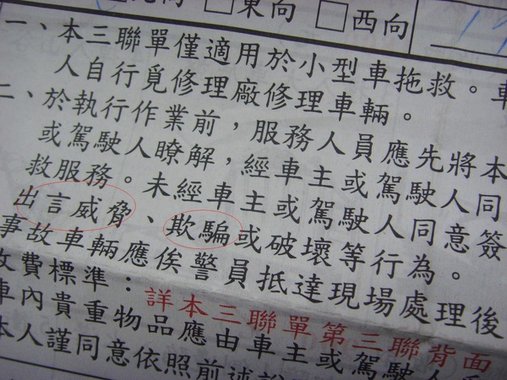 □東向 □西向
一、本三聯單僅適用於小型車拖救。車
人自行覓修理廠修理車輛。
二、於執行作業前，服務人員應先將本
或駕駛人瞭解，經車主或駕駛人同意簽
救服務。未經車主或駕駛人同
出言威脅、欺騙或破壞等行為。
事故車輛應俟警員抵達現場處理後
收費標準：詳本三聯單第三聯背面
車內貴重物品應由車主或駕駛人
本人謹同意依照前述